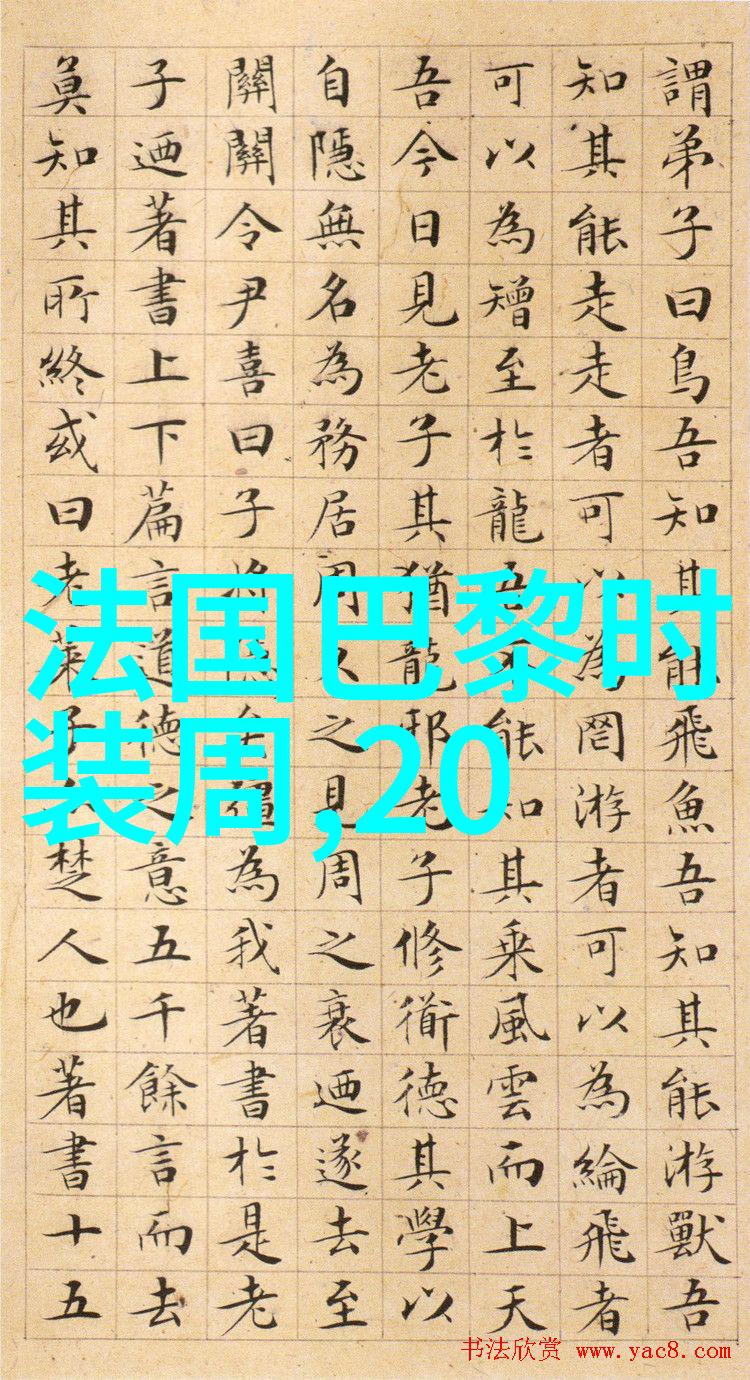 謂弟子曰鳥吾知其能飛魚吾知其能游獸吾
知其能走走者可以為罔游者可以為綸飛者
可以為矰至於龍吾不能知其乘風雲而上天
吾今日見老子其猶龍邪老子修衟德其學以
自隱無名為務居周久之見周之衰迺遂去至
關關令尹喜曰子將隱矣彊為我著書於是老
子迺著書上下篇言道德之意五千餘言而去
莫知其所終或曰老萊子亦楚人也著書十五
法国巴黎时
装周,20
书法欣赏 www.yac8.com